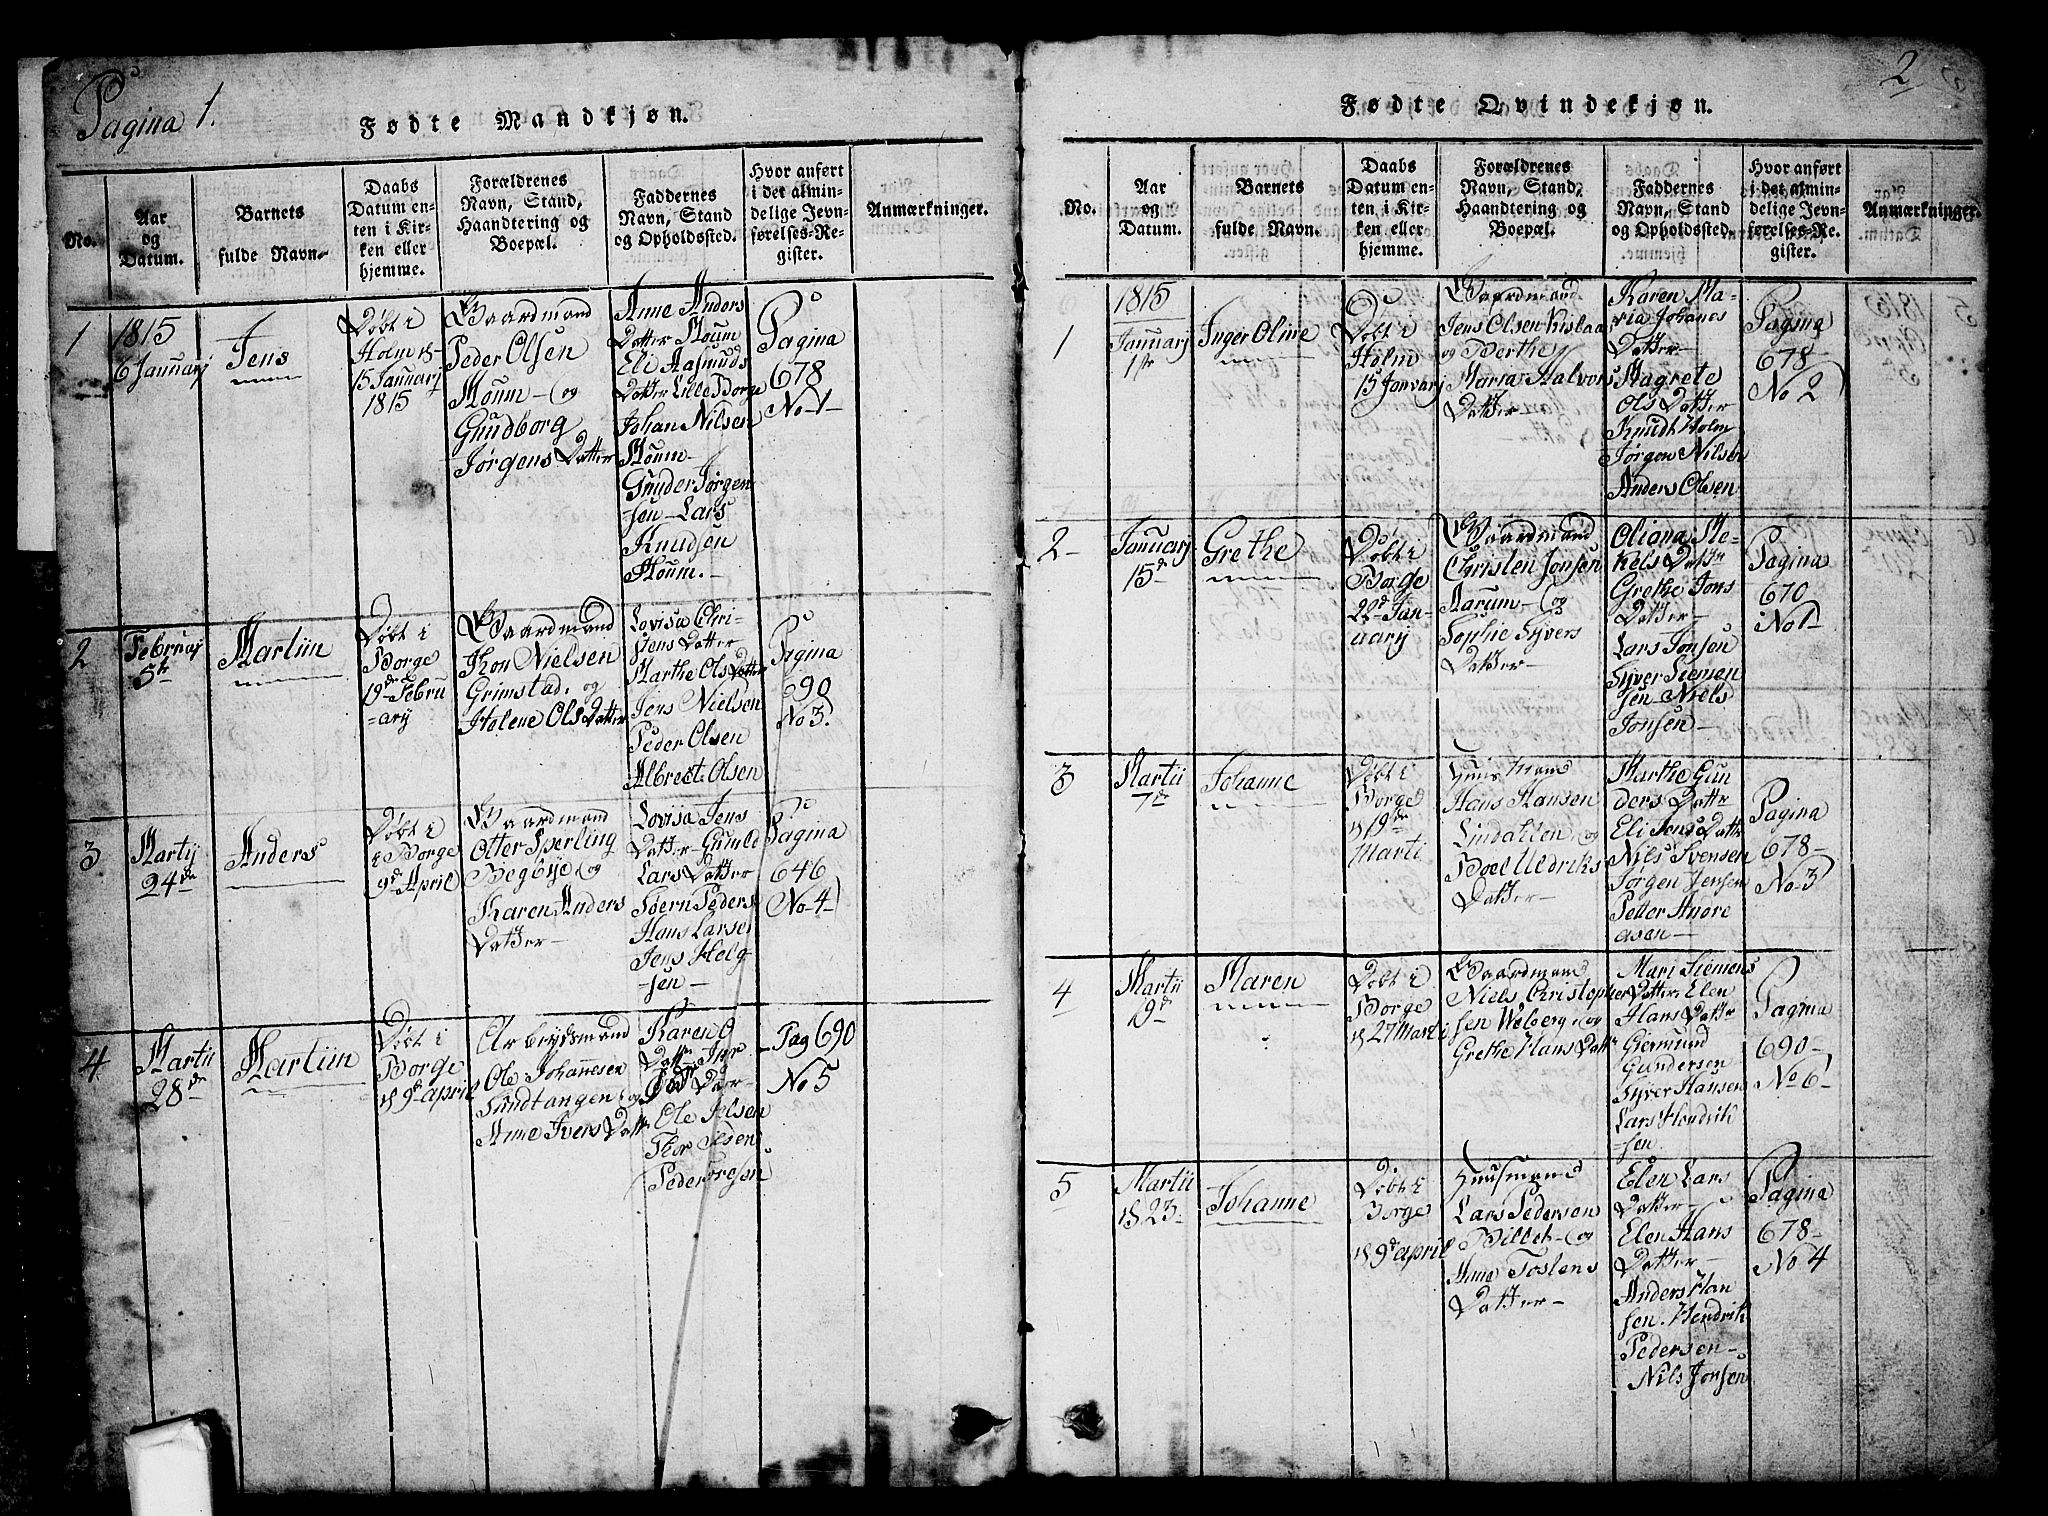 Pagina 1.
Fødte Mandkjøn.
No.
Aar
og
Datum.
Barnets
fulde Navn.
Daabs
Datum en-
ten i Kir-
ken eller
hjemme.
Forældrenes
Navn, Stand,
Haandtering og
Boepæl.
Faddernes
Navn, Stand
og Opholdssted.
Hvor anført
i det almin-
delige Jevn-
førelses-Re-
gister.
Anmærkninger.
1
1815
6 Januarj
Jens
Døbt i
Holm
15 Januarj
1815
Gaardmand
Peder Olsen
Moum - og
Gundborg
Jørgens Datter
Anne Anders
Datter Moum
Eli Aasmuds
Datter Lille Borge
Johan Nilsen
Moum -
Gunder Jørgen
sen - Lars
Knudsen
Moum. -
Pagina
678
No 1
2
Februarj
5te
Martiin
Døbt i
Borge
19de Febru
=arj
Gaardmand
Thon Nielsen
Grimstad. og
Holene Ols Datter
Lovisa Chri-
stens Datter
Marthe Ols Datter
Jens Nielsen
Peder Olsen
Albrect Olsen
Pagina
690
No 3.
3
Martij
24de
Anders
Døbt i
Borge
9de April
Gaardmand
Otter Sperling
Begbye og
Karen Anders
Datter -
Lovisa Jens
Datter - Gunild
Lars Datter
Søern Peders
Hans Larsen
Jens Helg-
=sen -
Pagina
646
No 4
4
Martii
28de
Martiin
Døbt i
Borge
9de april
Arbeydsmand
Ole Johannesen
Sundtangen og
Anne Ivers Datter
Karen O
Datter
Datter
Ole
Thor Olsen
Peder
Pag 690
No 5
2
Fødte Qvindekjøn.
No.
Aar
og
Datum.
Barnets
fulde Navn.
Daabs
Datum en-
ten i Kir-
ken eller
hjemme.
Forældrenes
Navn, Stand,
Haandtering og
Boepæl.
Faddernes
Navn, Stand
og Opholdssted.
Hvor anført
i det almin-
delige Jevn-
førelses-Re-
gister.
Anmærkninger.
1
1815
Januarj
1ste
Inger Oline
Døbt i
Holm
15 Janvarj
Gaardmand
Jens Olsen
og Berthe
Maria Halvors
Datter
Karen Ma-
ria Johanes
Datter -
Magrete
Ols Datter
Knudt Holm
Jørgen Nilsen
Anders Olsen
Pagina
678
No 2
2
Januarj
15de
Grethe
Døbt i
Borge
22de Jan-
uarij
Gaardmand
Christen Jonsen
Aarum - og
Sophie Syvers
Datter -
Oliana Me-
kels Datter
Grethe Jons
Datter -
Lars Jonsen
Syver Siemen
sen - Niels
Jonsen -
Pagina
670
No 1
3
Martii
7de
Johanne
Døbt i
Borge
19de
Marti
Huusmand
Hans Hansen
Lindalien og
Boel Uldriks
Datter -
Marthe Gun
ders Datter
Eli Jens Datter
Nils Svensen
Jørgen Jensen
Petter Andre
asen -
Pagina
678 -
No 3
4
Martii
19de
Maren
Døbt i
Borge
27 Marti
Gaardmand
Niels Christopher
sen Woberg. og
Grethe Hans Datter
Mari Siemens
Datter. Elen
Hans Datter
Giermund
Gundersen
Syver Hansen
Lars Hendrik
=sen
Pagina
690 -
No 6
5
Martii
23
Johanne
Døbt i
Borge
9de april
Huusmand
Lars Pedersen
Billet - og
Anne Tostens
Datter -
Elen Lars
Datter -
Elen Hans
Datter -
Anders Han
sen. Hendrik
Pedersen -
Nils Jonsen
Pagina
678 -
No 4